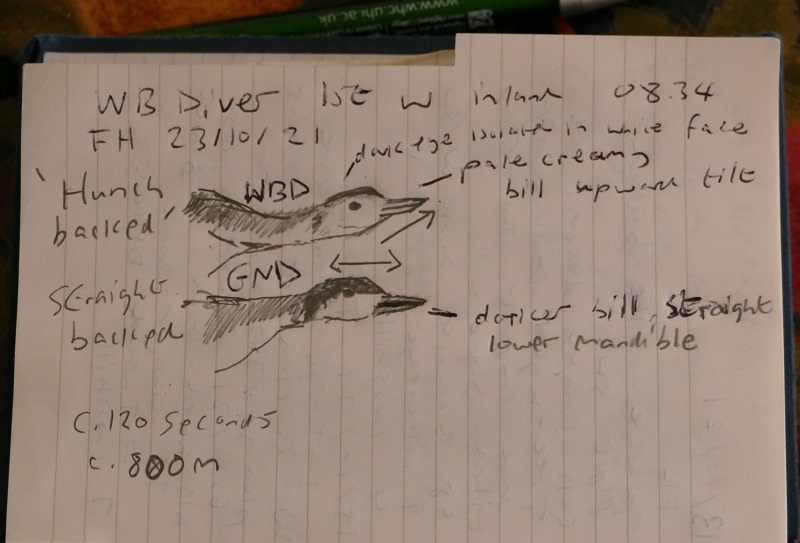 www.whc.uhi.ac.uk
WB Diver 1st W inland 08.34
FH 23/10/21
dark eye isolated in white face
pale creamy
bill upward tilt
'Hunch
backed'
WBD
GND
Straight
backed
darker bill, straight
lower mandible
C.120 Seconds
c. 800m